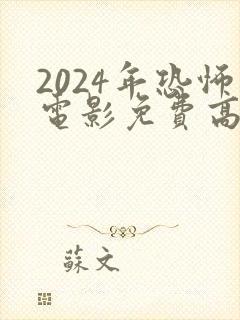 2024年恐怖
電影免費高
蘇文